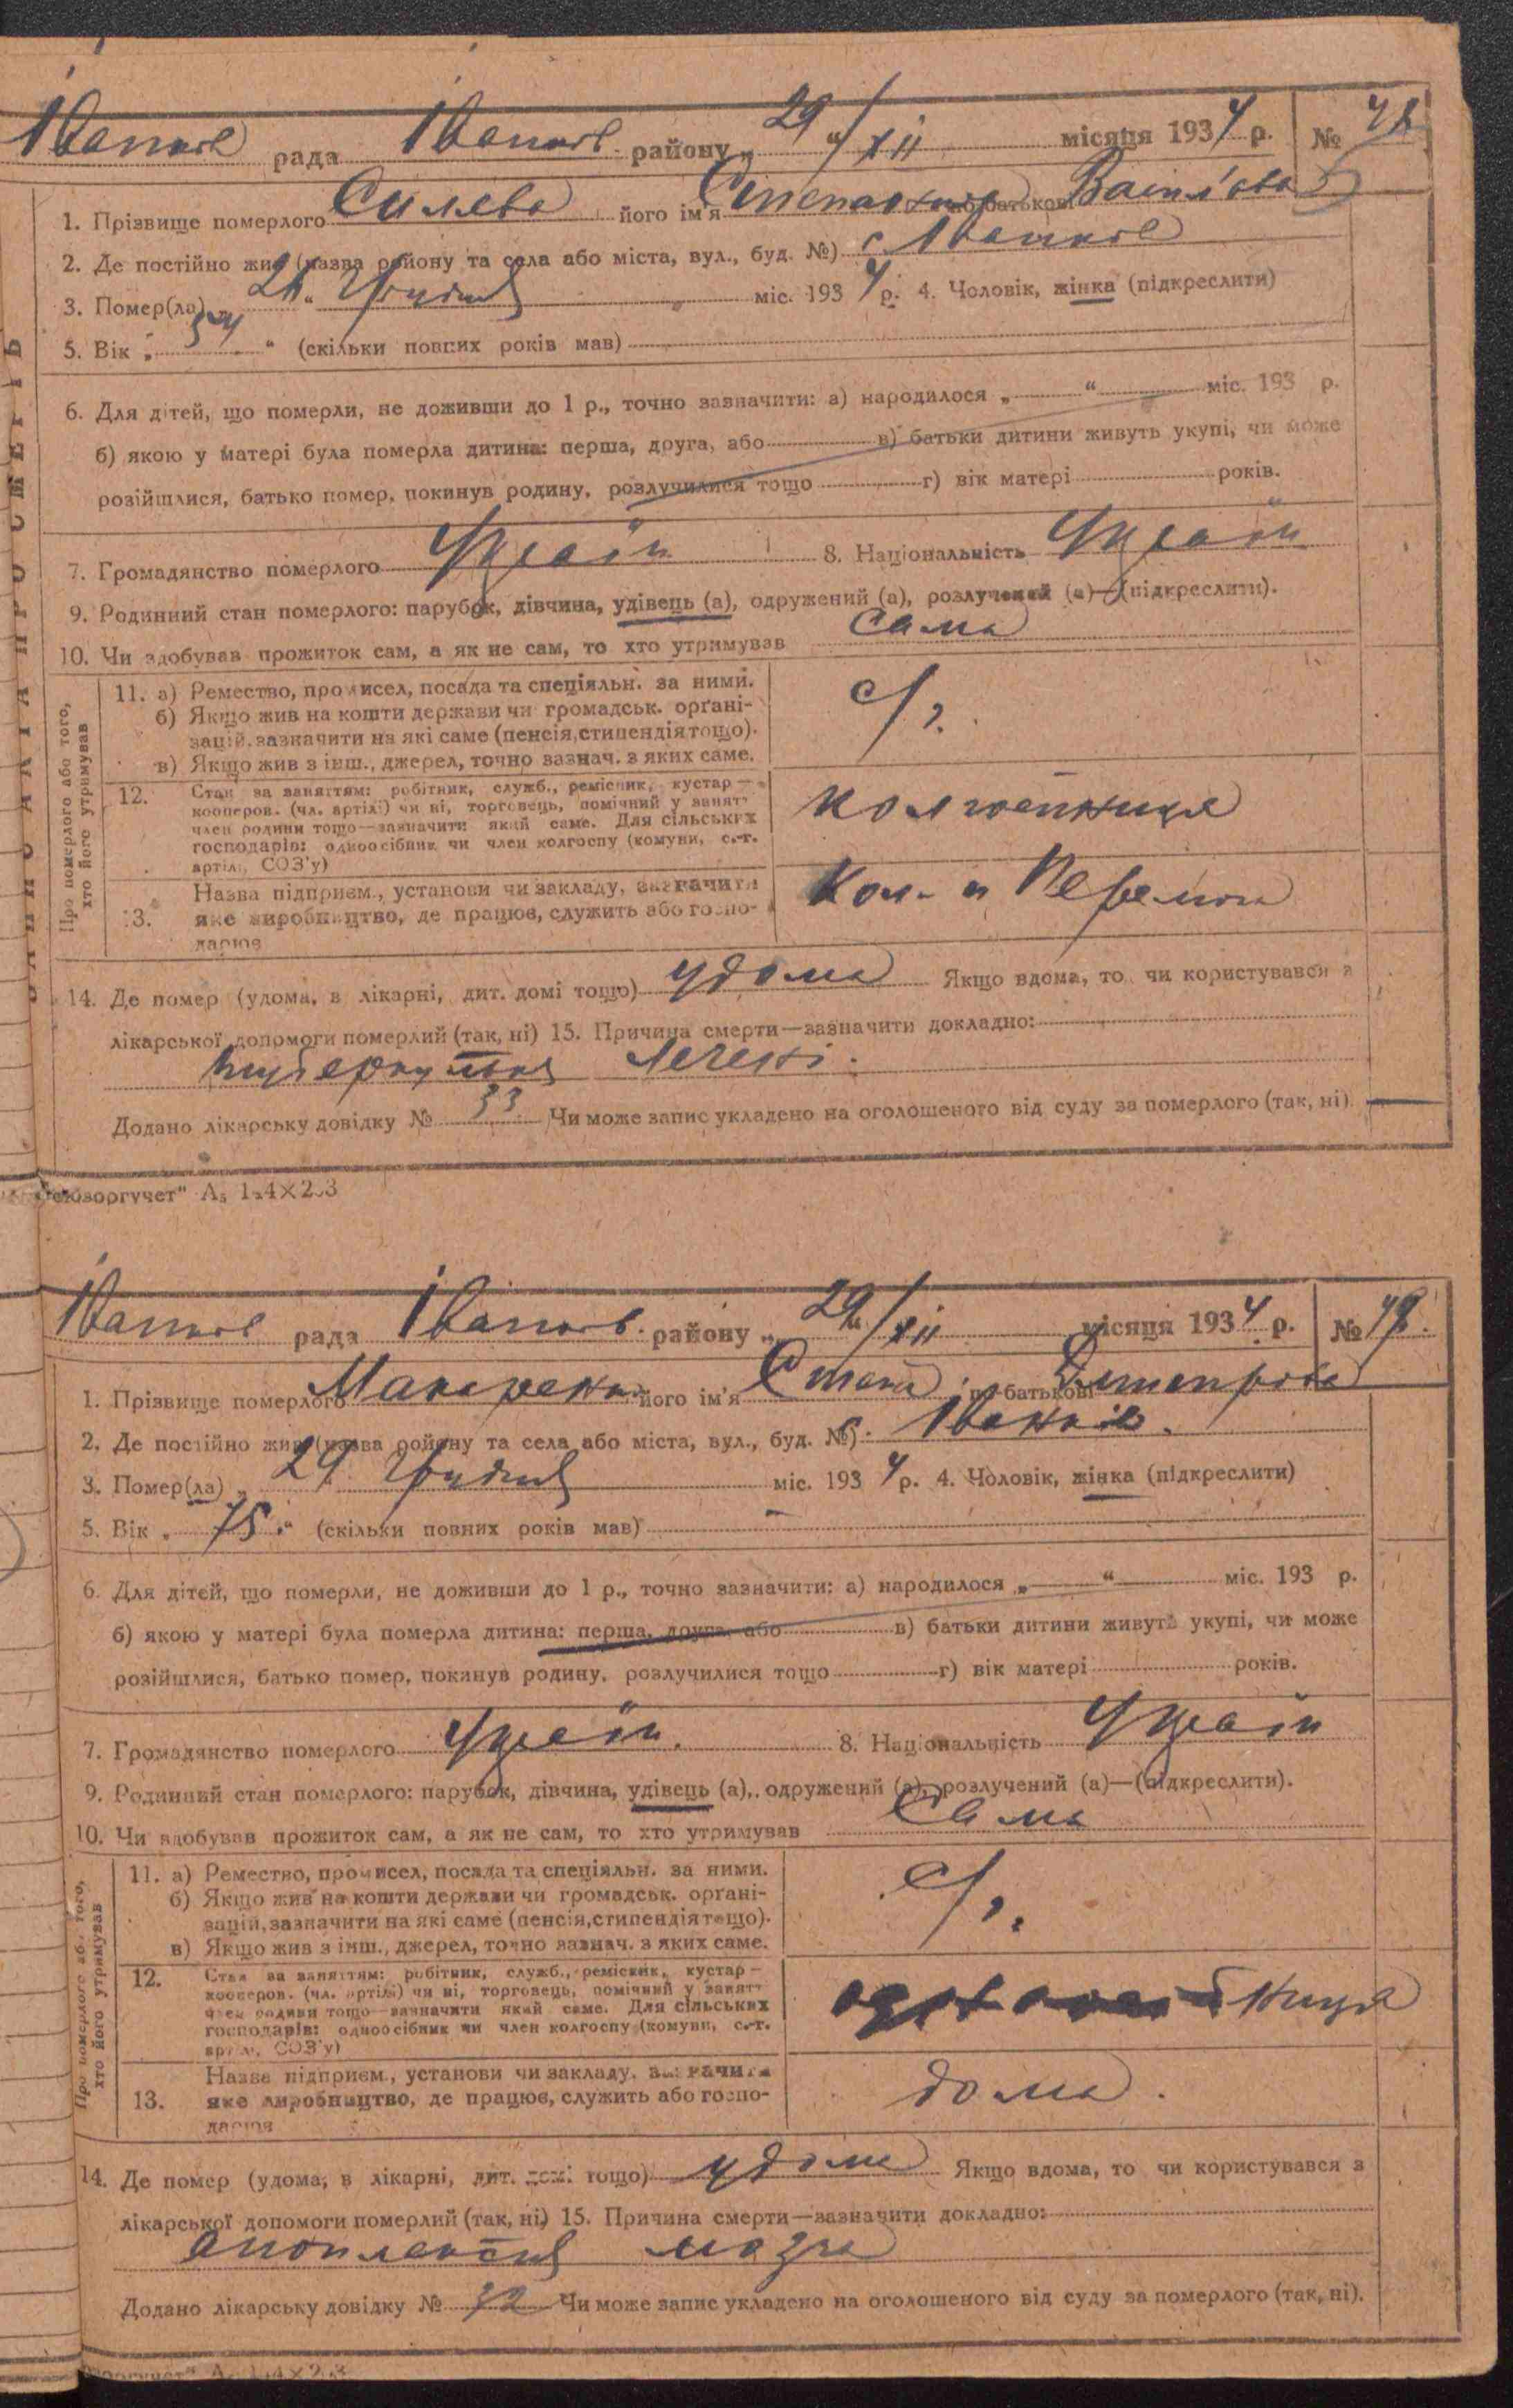 рада району „ 29 / XII місяця 1934 р. №
1. Прізвище померлого його ім'я по батькові
2. Де постійно жив (назва району та села або міста, вул., буд. №) с
3. Помер(ла) „ “ Грудня міс. 1934 р. 4. Чоловік, жінка (підкреслити)
5. Вік „ 54 “ (скільки повних років мав)
6. Для дітей, що померли, не доживши до 1 р., точно зазначити: а) народилося „ “ міс. 193 р.
б) якою у матері була померла дитина: перша, друга, або в) батьки дитини живуть укупі, чи може
розійшлися, батько помер, покинув родину, розлучилися тощо г) вік матері років.
7. Громадянство померлого Україн 8. Національність Україн
9. Родинний стан померлого: парубок, дівчина, удівець (а), одружений (а), розлучений (а)—(підкреслити).
10. Чи здобував прожиток сам, а як не сам, то хто утримував сама
Про померлого або того,
хто його утримував
11. а) Ремество, промисел, посада та спеціяльн. за ними.
б) Якщо жив на кошти держави чи громадськ. орґані-
зацій, зазначити на які саме (пенсія, стипендія тощо).
в) Якщо жив з інш., джерел, точно зазнач. з яких саме.
с/г.
12. Стан за заняттям: робітник, служб., ремісник, кустар —
кооперов. (чл. артілі) чи ні, торговець, помічний у занятт
член родини тощо—зазначити який саме. Для сільських
господарів: одноосібник чи член колгоспу (комуни, с.-г.
артілі, СОЗ'у)
колгоспниця
13. Назва підприєм., установи чи закладу, зазначити
яке виробництво, де працює, служить або госпо-
дарює
14. Де помер (удома, в лікарні, дит. домі тощо) удома Якщо вдома, то чи користувався з
лікарської допомоги померлий (так, ні) 15. Причина смерти—зазначити докладно:
туберкульоз легені.
Додано лікарську довідку № 33 Чи може запис укладено на оголошеного від суду за померлого (так, ні).
"Союзоргучет" А₅
рада району „ 29 / XII місяця 1934 р. №
1. Прізвище померлого його ім'я по батькові Дмитрова
2. Де постійно жив (назва району та села або міста, вул., буд. №) с. Іванків.
3. Помер(ла) „ 29 “ Грудня міс. 1934 р. 4. Чоловік, жінка (підкреслити)
5. Вік „ 75. “ (скільки повних років мав)
6. Для дітей, що померли, не доживши до 1 р., точно зазначити: а) народилося „ “ міс. 193 р.
б) якою у матері була померла дитина: перша, друга, або в) батьки дитини живуть укупі, чи може
розійшлися, батько помер, покинув родину, розлучилися тощо г) вік матері років.
7. Громадянство померлого Україн. 8. Національність Україн
9. Родинний стан померлого: парубок, дівчина, удівець (а), одружений (а), розлучений (а)—(підкреслити).
10. Чи здобував прожиток сам, а як не сам, то хто утримував Сама
Про померлого аб. того,
хто його утримував
11. а) Ремество, промисел, посада та спеціяльн. за ними.
б) Якщо жив на кошти держави чи громадськ. орґані-
зацій, зазначити на які саме (пенсія, стипендія тощо).
в) Якщо жив з інш., джерел, точно зазнач. з яких саме.
с/г.
12. Стан за заняттям: робітник, служб., ремісник, кустар —
кооперов. (чл. артілі) чи ні, торговець, помічний у занятт
член родини тощо—зазначити який саме. Для сільських
господарів: одноосібник чи член колгоспу (комуни, с.-г.
артілі, СОЗ'у)
одноосібниця
13. Назва підприєм., установи чи закладу, зазначити
яке виробництво, де працює, служить або госпо-
дарює
дома.
14. Де помер (удома, в лікарні, дит. домі тощо) удома Якщо вдома, то чи користувався з
лікарської допомоги померлий (так, ні) 15. Причина смерти—зазначити докладно:
апоплексія мозга
Додано лікарську довідку № 32 Чи може запис укладено на оголошеного від суду за померлого (так, ні).